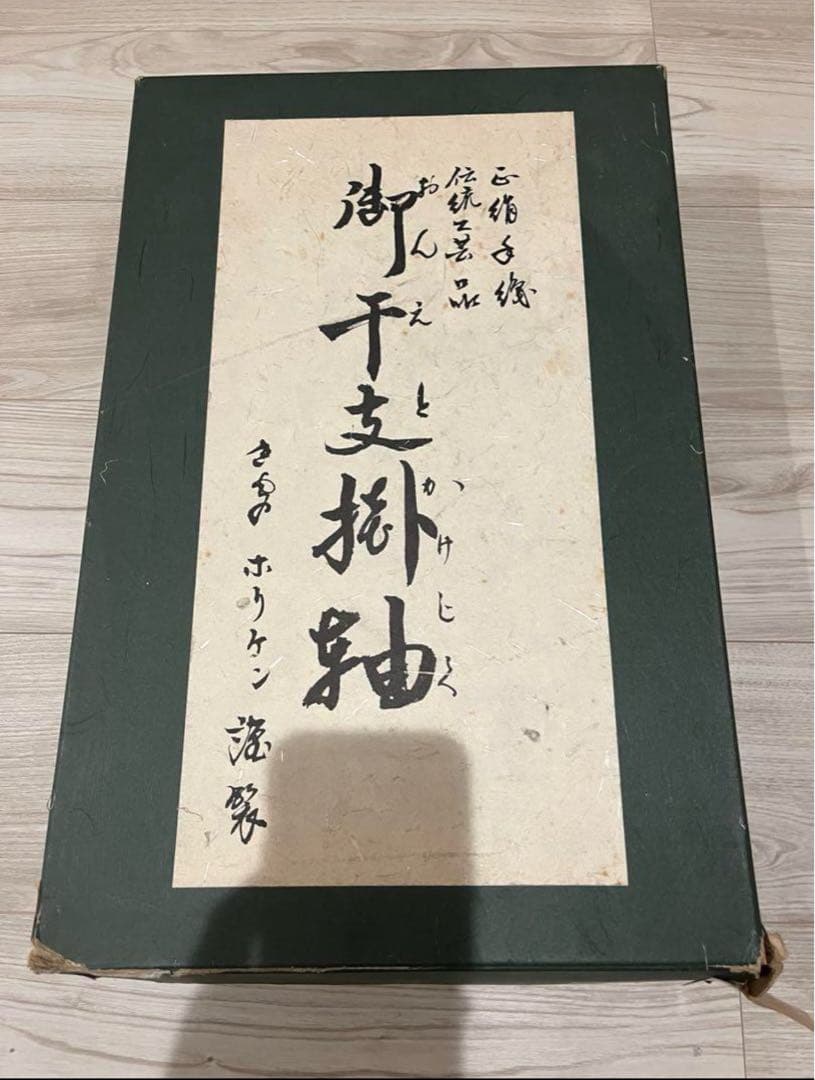 正絹手織
伝統工芸品
おんえとかけじく
御干支掛軸
きもの ホリケン 謹製